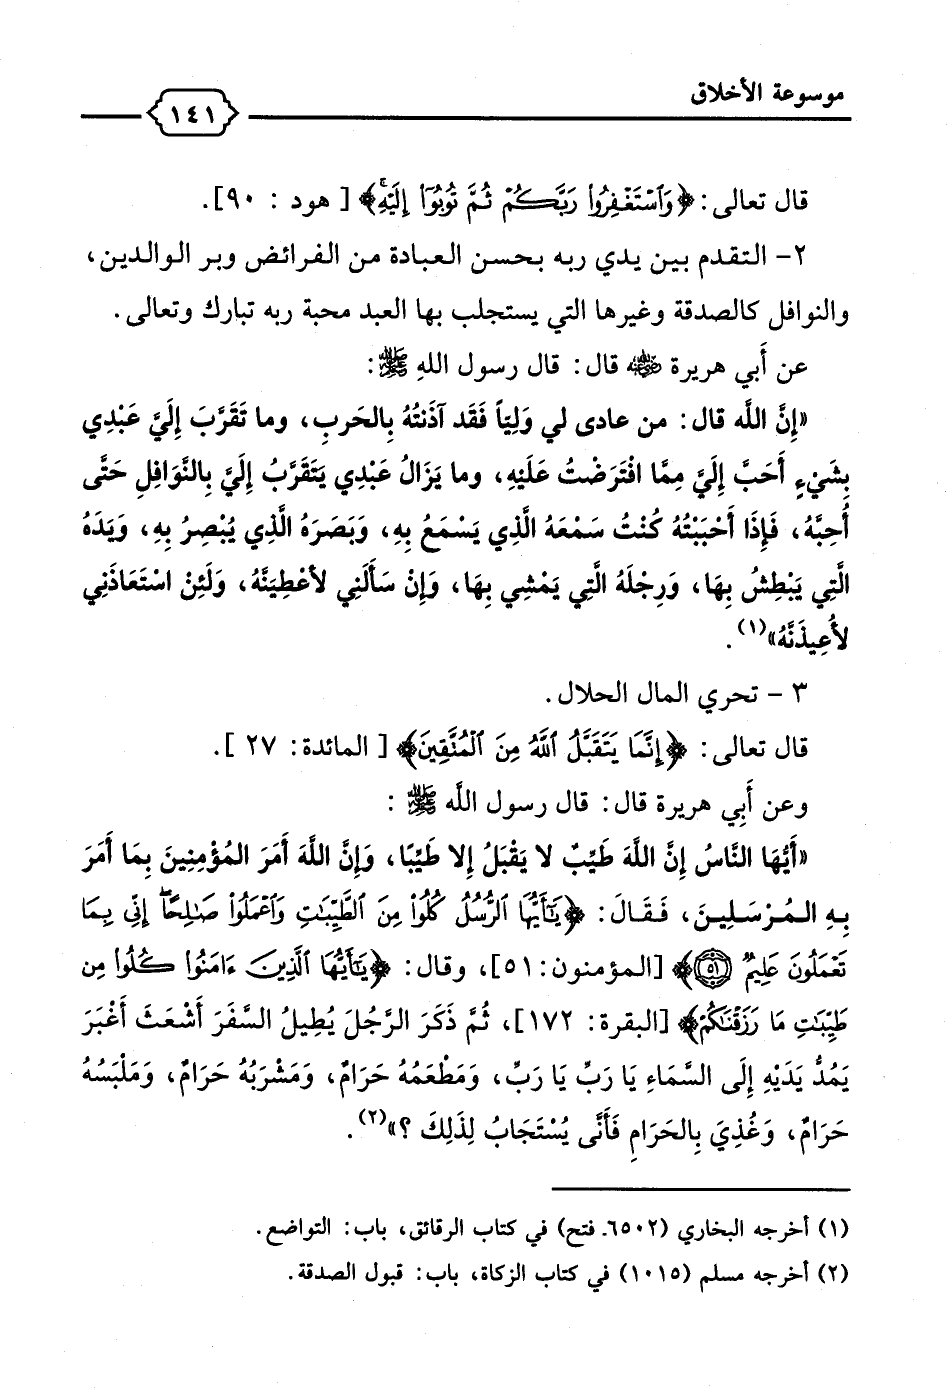 موسوعة الأخلاق
١٤١
قال تعالى: ﴿وَٱسْتَغْفِرُوا۟ رَبَّكُمْ ثُمَّ تُوبُوٓا۟ إِلَيْهِ ۚ﴾ [ هود : ٩٠].
٢- التقدم بين يدي ربه بحسن العبادة من الفرائض وبر الوالدين،
والنوافل كالصدقة وغيرها التي يستجلب بها العبد محبة ربه تبارك وتعالى.
عن أَبي هريرة رضي الله عنه قال: قال رسول اللهِ ﷺ:
«إِنَّ اللَّه قال: من عادى لي وَلِيّاً فَقَد آذَنتُهُ بِالحَربِ، وما تَقَرَّبَ إِلَيَّ عَبْدِي
بِشَيْءٍ أَحَبَّ إِلَيَّ مِمَّا افْتَرَضْتُ عَلَيْهِ، وما يَزَالُ عَبْدِي يَتَقَرَّبُ إِلَيَّ بِالنَّوَافِلِ حَتَّى
أُحِبَّهُ، فَإِذَا أَحْبَبْتُهُ كُنْتُ سَمْعَهُ الَّذِي يَسْمَعُ بِهِ، وَبَصَرَهُ الَّذِي يُبْصِرُ بِهِ، وَيَدَهُ
الَّتِي يَبْطِشُ بِهَا، وَرِجْلَهُ الَّتِي يَمْشِي بِهَا، وَإِنْ سَأَلَنِي لأعْطِيَنَّهُ، وَلَئِنْ اسْتَعَاذَنِي
لأُعِيذَنَّهُ»(١).
٣ - تحري المال الحلال.
قال تعالى: ﴿إِنَّمَا يَتَقَبَّلُ ٱللَّهُ مِنَ ٱلْمُتَّقِينَ﴾ [ المائدة: ٢٧ ].
وعن أَبِي هريرة قال: قال رسول اللَّه ﷺ :
«أَيُّهَا النَّاسُ إِنَّ اللَّهَ طَيِّبٌ لا يَقْبَلُ إِلا طَيِّبًا، وَإِنَّ اللَّهَ أَمَرَ المُؤْمِنِينَ بِمَا أَمَرَ
بِهِ المُرْسَلِينَ، فَقَالَ: ﴿يَٰٓأَيُّهَا ٱلرُّسُلُ كُلُوا۟ مِنَ ٱلطَّيِّبَٰتِ وَٱعْمَلُوا۟ صَٰلِحًا ۖ إِنِّى بِمَا
تَعْمَلُونَ عَلِيمٌ ۝٥١﴾ [المؤمنون:٥١]، وقال: ﴿يَٰٓأَيُّهَا ٱلَّذِينَ ءَامَنُوا۟ كُلُوا۟ مِن
طَيِّبَٰتِ مَا رَزَقْنَٰكُمْ﴾ [البقرة: ١٧٢]، ثُمَّ ذَكَرَ الرَّجُلَ يُطِيلُ السَّفَرَ أَشْعَثَ أَغْبَرَ
يَمُدُّ يَدَيْهِ إِلَى السَّمَاءِ يَا رَبِّ يَا رَبِّ، وَمَطْعَمُهُ حَرَامٌ، وَمَشْرَبُهُ حَرَامٌ، وَمَلْبَسُهُ
حَرَامٌ، وَغُذِيَ بِالحَرَامِ فَأَنَّى يُسْتَجَابُ لِذَلِكَ ؟»(٢).
(١) أخرجه البخاري (٦٥٠٢ـ فتح) في كتاب الرقائق، باب: التواضع.
(٢) أخرجه مسلم (١٠١٥) في كتاب الزكاة، باب: قبول الصدقة.